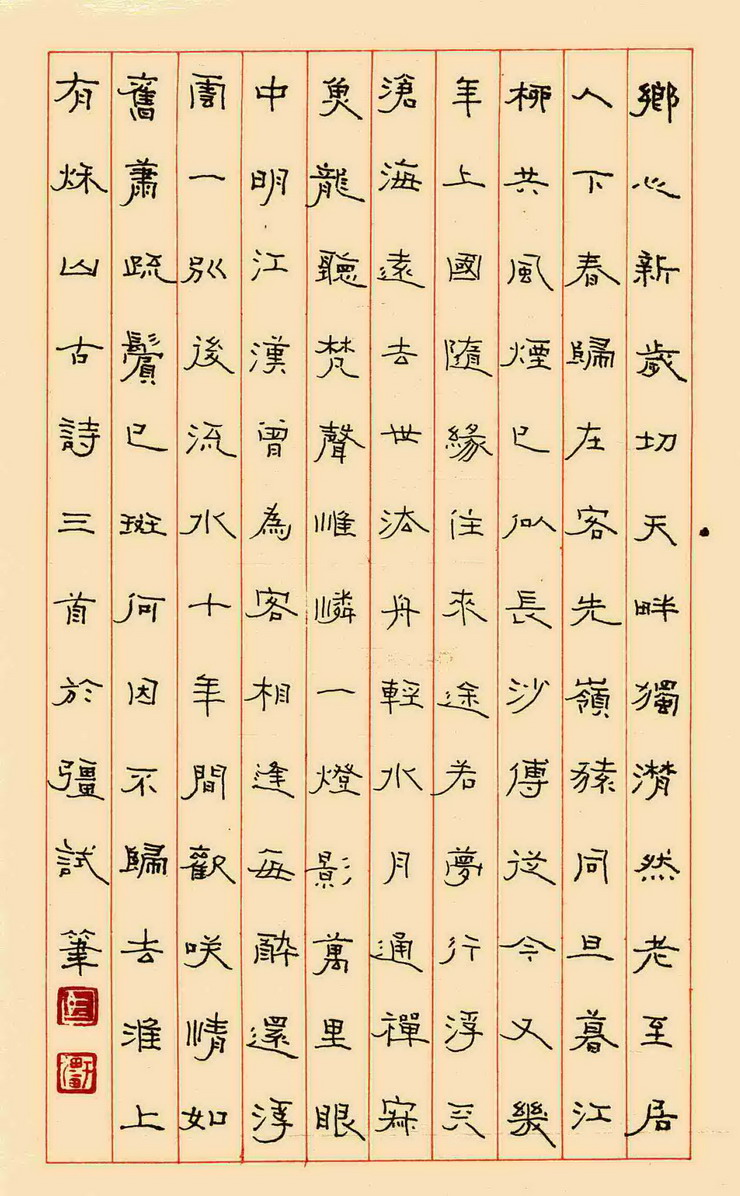 鄉心新歲切天畔獨潸然老至居
人下春歸在客先嶺猿同旦暮江
柳共風煙已似長沙傅從今又幾
年上國隨緣住來途若夢行浮天
滄海遠去世法舟輕水月通禪寂
魚龍聽梵聲惟憐一燈影萬里眼
中明江漢曾為客相逢每醉還浮
雲一別後流水十年間歡咲情如
舊蕭疏鬢已斑何因不歸去淮上
有秌山古詩三首於彊試筆